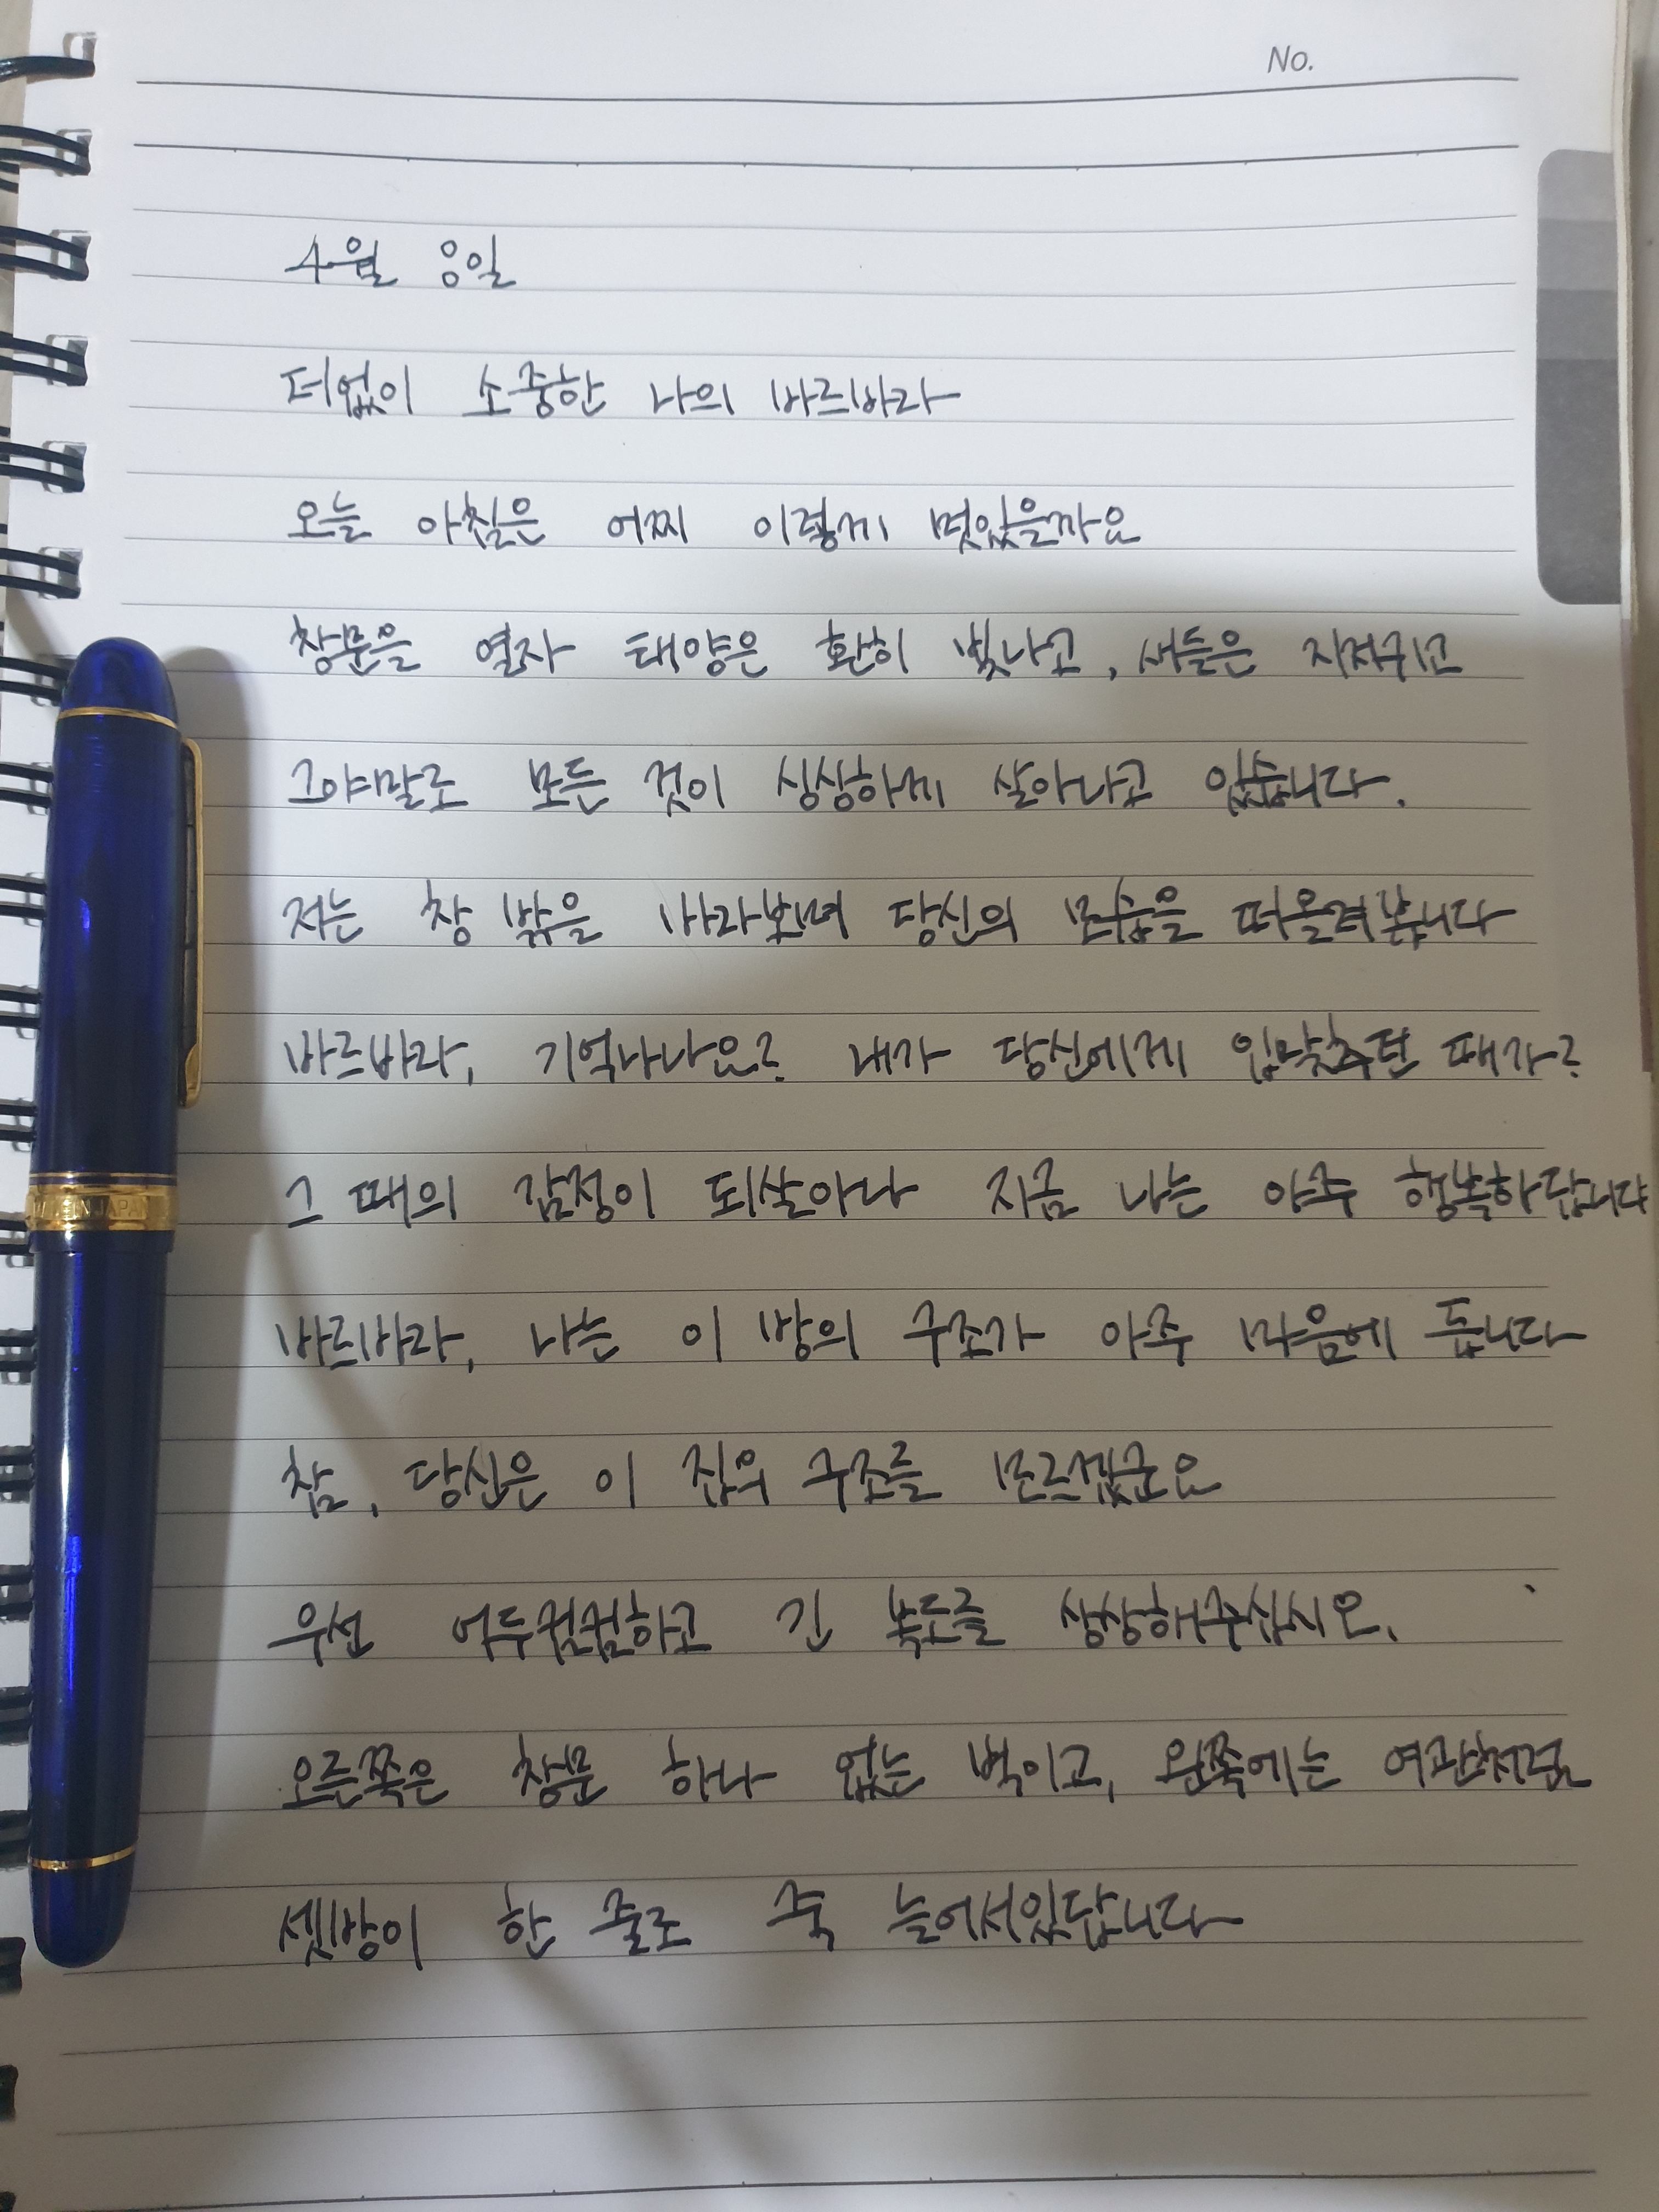 No.
4월 8일
더없이 소중한 나의 바르바라
오늘 아침은 어찌 이렇게 멋있을까요
창문을 열자 태양은 환히 빛나고, 새들은 지저귀고
그야말로 모든 것이 싱싱하게 살아나고 있습니다.
저는 창 밖을 바라보며 당신의 모습을 떠올려봅니다
바르바라, 기억나나요? 내가 당신에게 입맞추던 때가?
그 때의 감정이 되살아나 지금 나는 아주 행복하답니다
바르바라, 나는 이 방의 구조가 아주 마음에 듭니다
참, 당신은 이 집의 구조를 모르겠군요
우선 어두컴컴하고 긴 복도를 상상해주십시오.
오른쪽은 창문 하나 없는 벽이고, 왼쪽에는 여관처럼
셋방이 한 줄로 죽 늘어서있답니다
MADE IN JAPAN